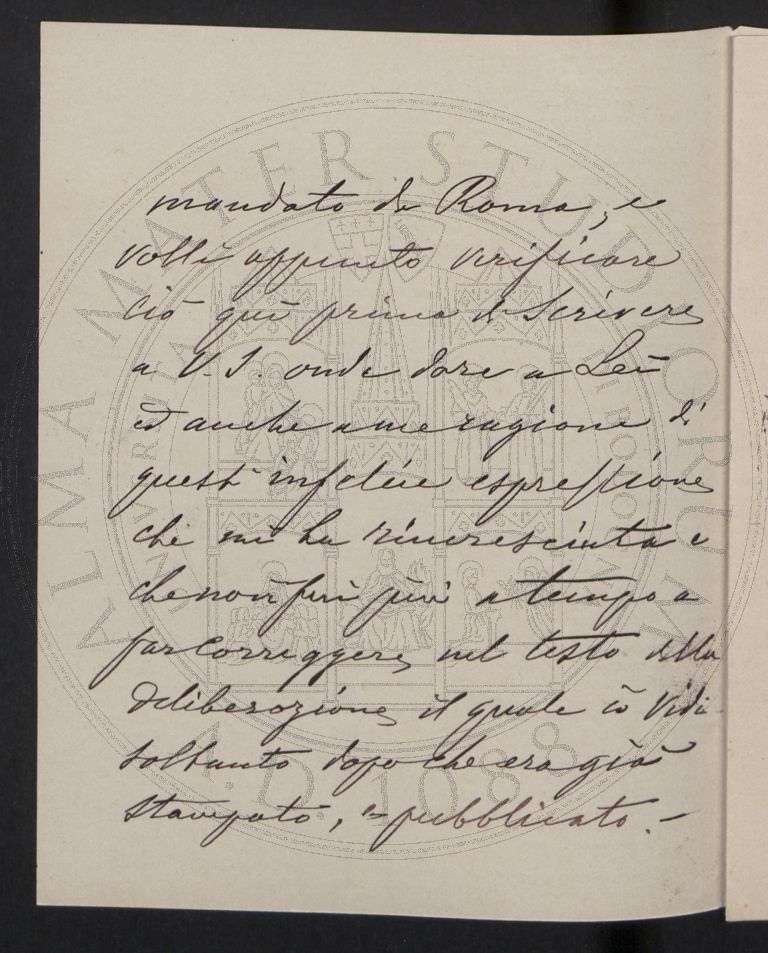 mandato da Roma, e
volli appunto verificare
ciò quì prima di Scrivere
a V. S. onde dare a Lei
ed anche a me ragione di
quest' infelice espressione
che mi ha rincresciuta e
che non fui più a tempo a
far correggere nel testo della
deliberazione il quale io vidi
soltanto dopo che era già
stampato, e pubblicato. -
ALMA MATER STUDIORUM
A.D. 1088